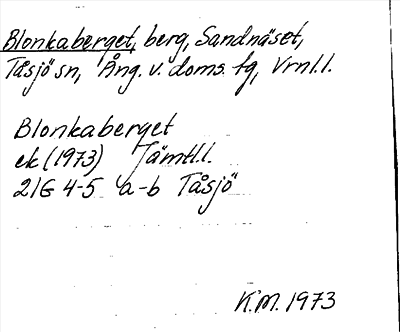 Blonkaberget, berg, Sandnäset,
Tåsjö sn, Ång. v. doms. fg, Vrnl.l.
Blonkaberget
ek (1973) Jämtl.l.
21G 4-5 a-b Tåsjö
K.M. 1973